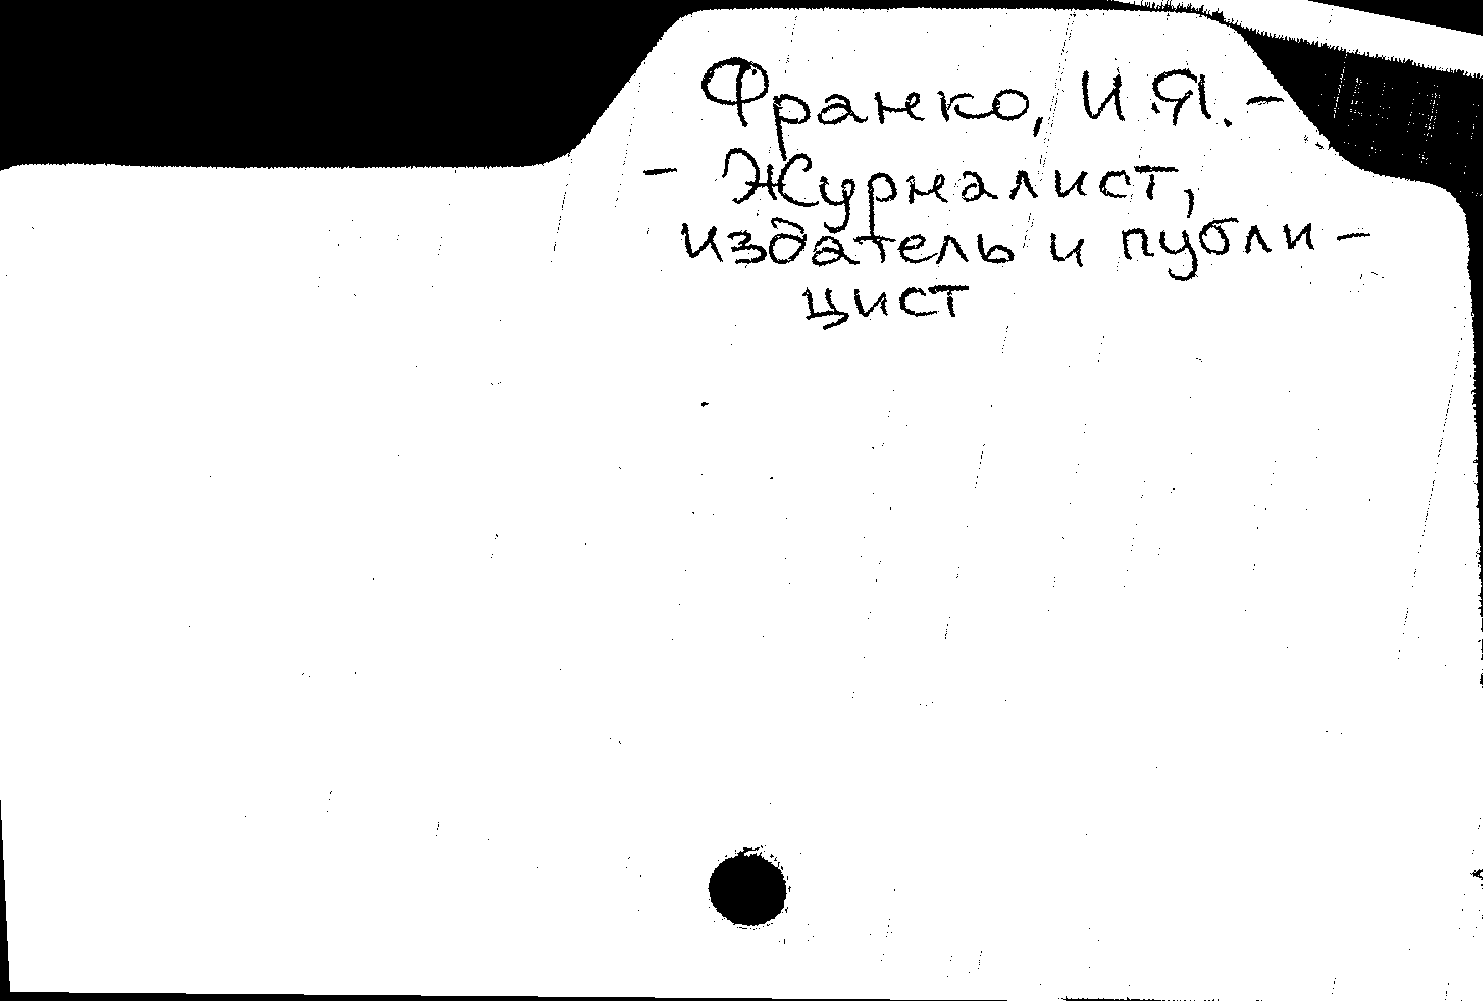 Франко, И.Я. –
– Журналист,
издатель и публи –
цист